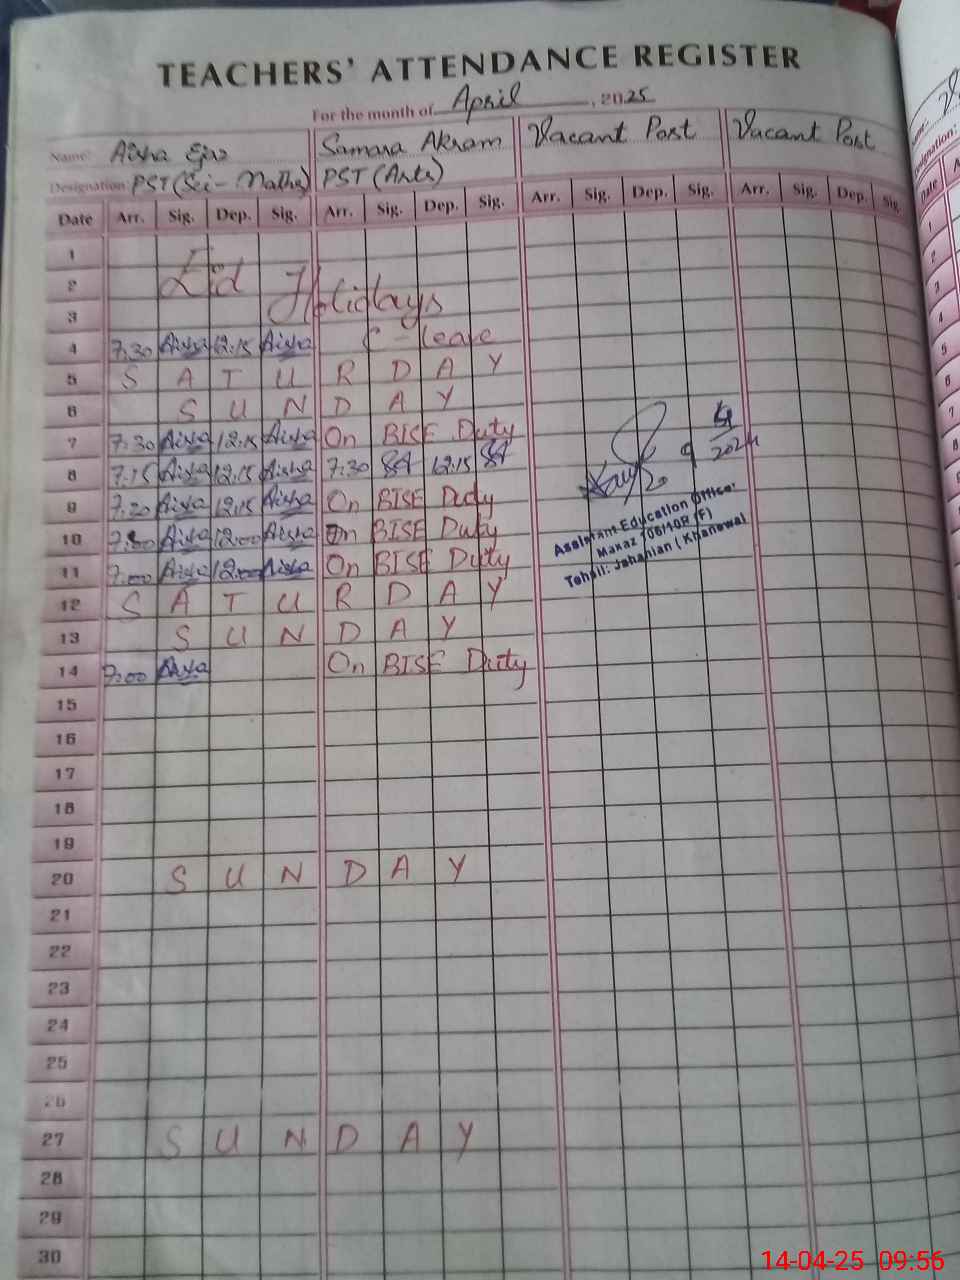 TEACHERS' ATTENDANCE REGISTER
For the month of April, 2025
Name: Aisha Ejaz Samara Akram Vacant Post Vacant Post
Designation: PST (Sci-Maths) PST (Arts)
Date Arr. Sig. Dep. Sig. Arr. Sig. Dep. Sig. Arr. Sig. Dep. Sig. Arr. Sig. Dep. Sig.
1
2 Eid Holidays
3
4 7:30 Aisha 12:15 Aisha C-leave
5 S A T U R D A Y
6 S U N D A Y
7 7:30 Aisha 12:15 Aisha On BISE Duty
8 7:15 Aisha 12:15 Aisha 7:30 SA 12:15 SA
9 7:20 Aisha 12:15 Aisha On BISE Duty
10 Aisha 12:00 Aisha On BISE Duty
11 7:00 Aisha 12:00 Aisha On BISE Duty
12 S A T U R D A Y
13 S U N D A Y
14 7:00 Aisha On BISE Duty
15
16
17
18
19
20 S U N D A Y
21
22
23
24
25
26
27 S U N D A Y
28
29
30
9
4
Assistant Education Officer
Makaz 106/10R (F)
Tehsil: Jahanian (Khanewal)
Name:
Designation:
Date
1
2
3
4
5
6
7
8
9
14-04-25 09:56